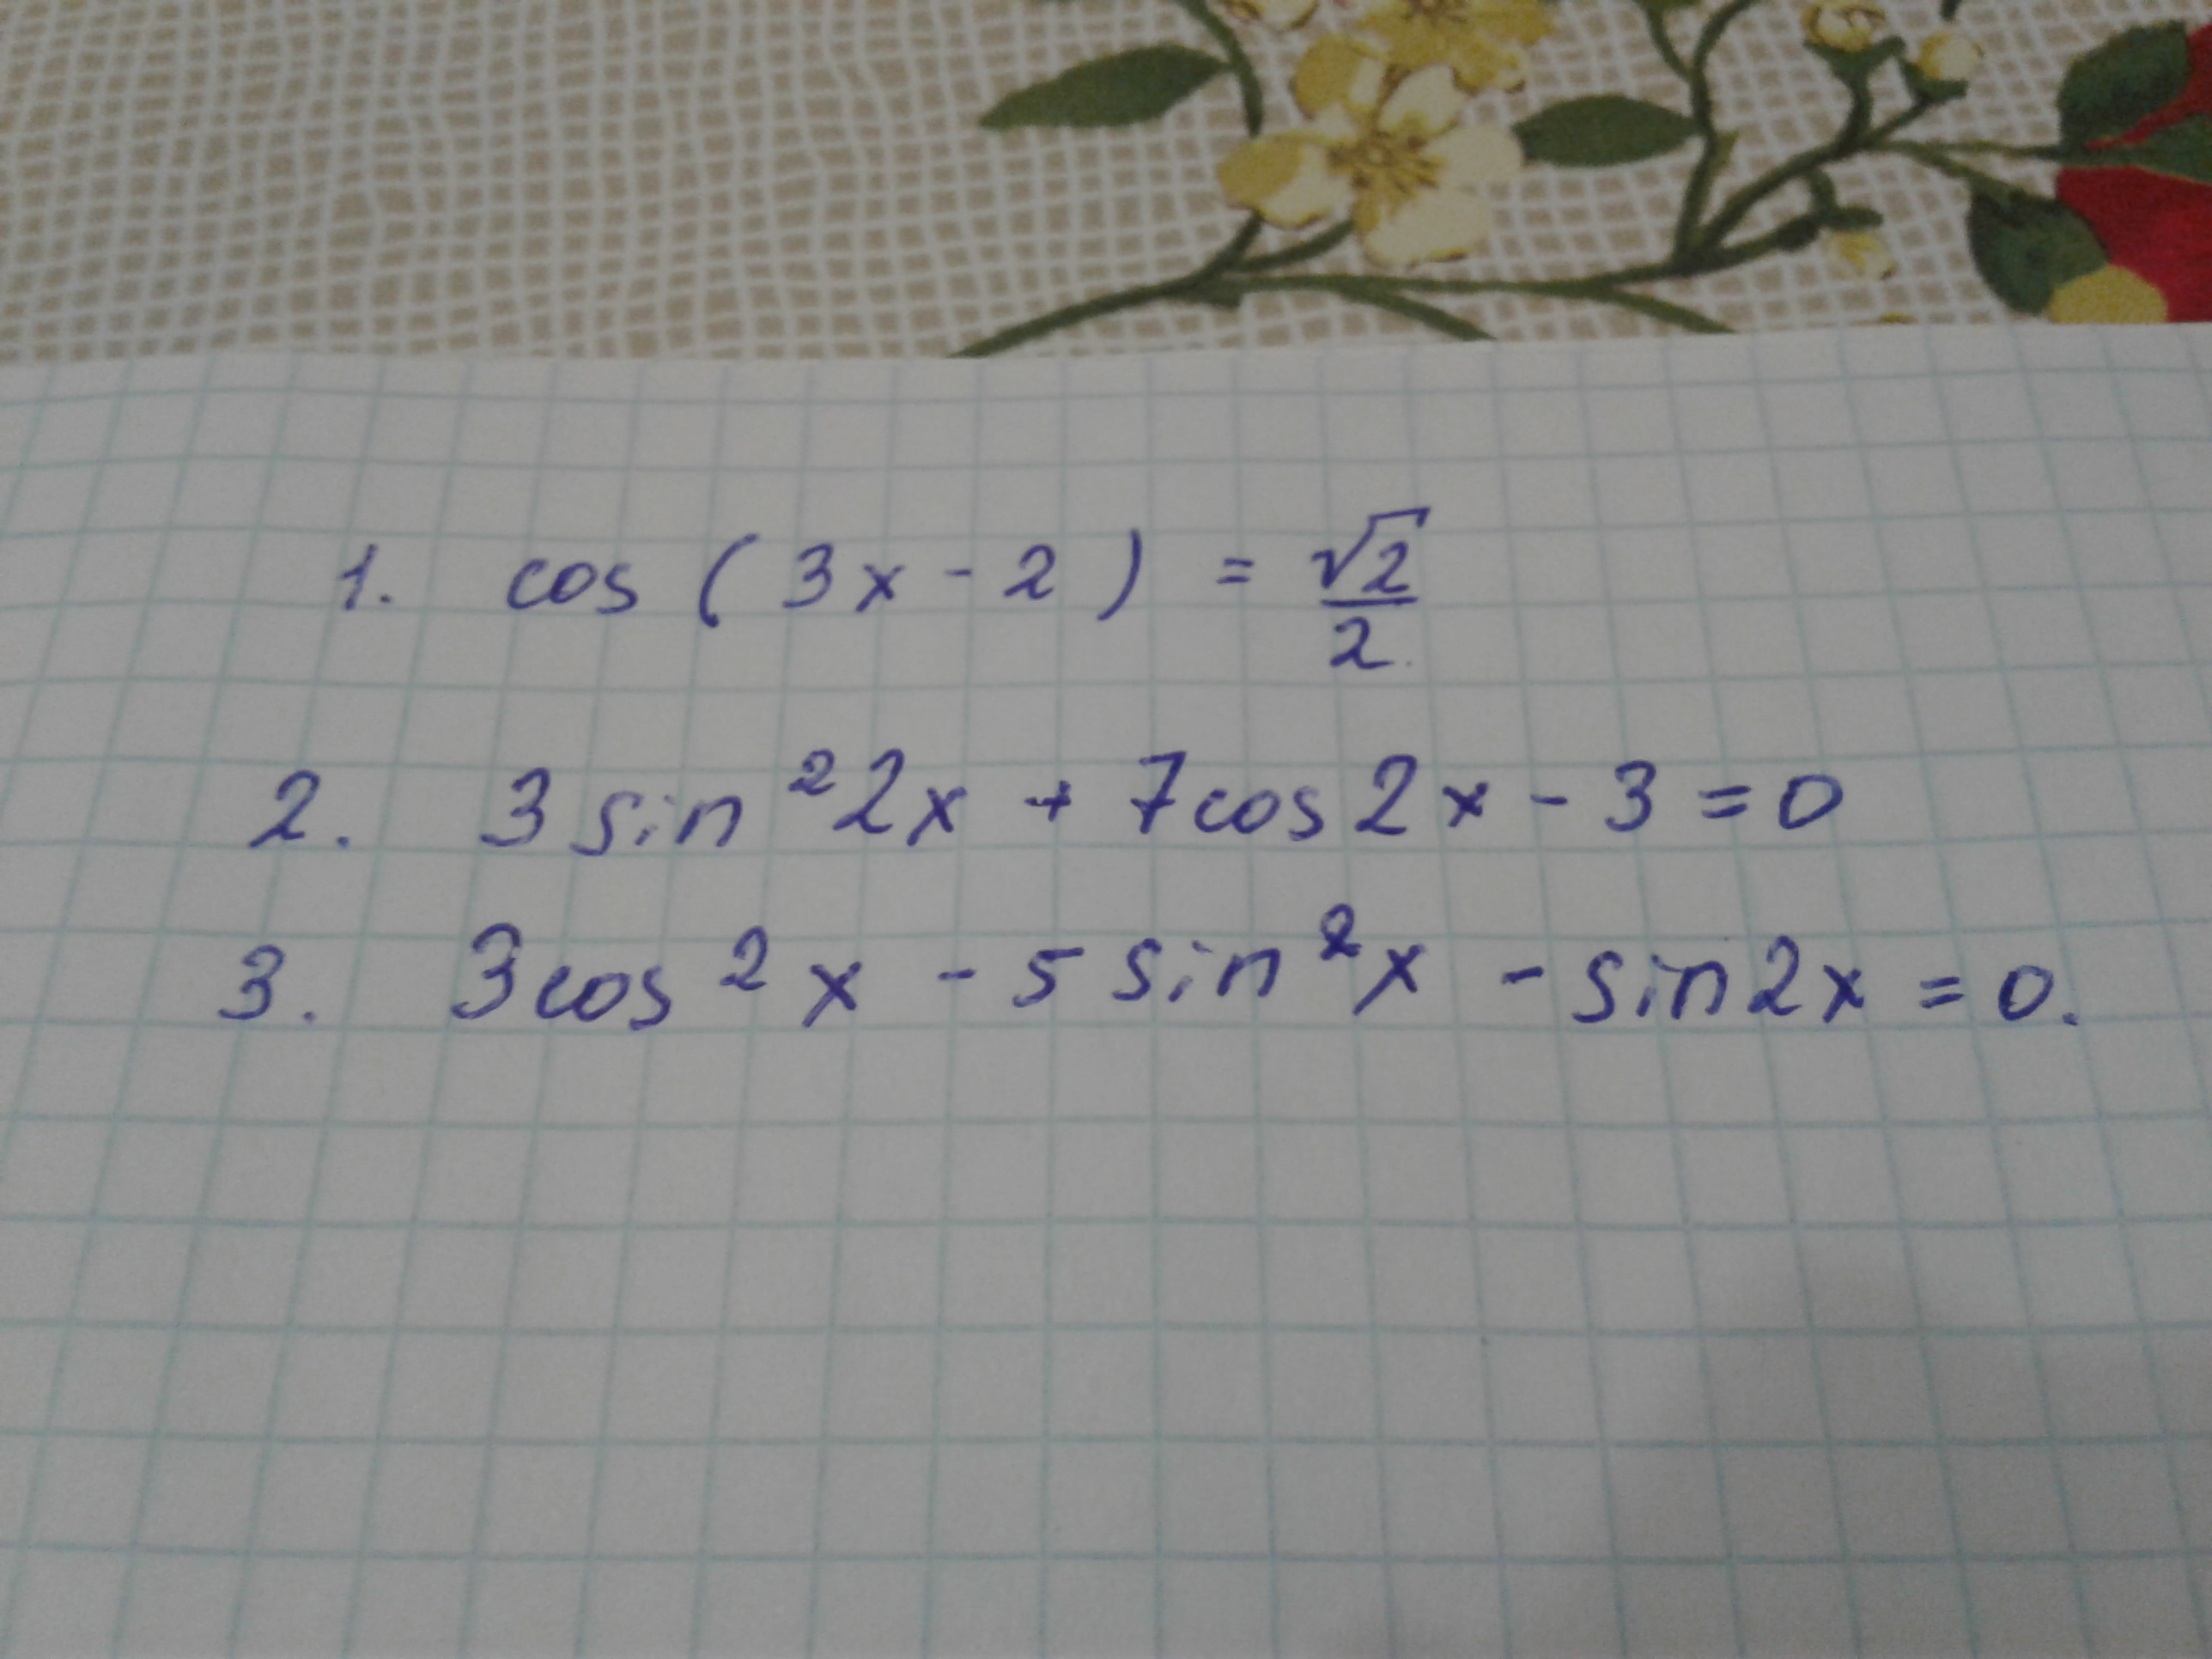 1. cos (3x - 2) = √2/2
2. 3 sin²2x + 7cos2x - 3 = 0
3. 3cos²x - 5 sin²x - sin2x = 0.